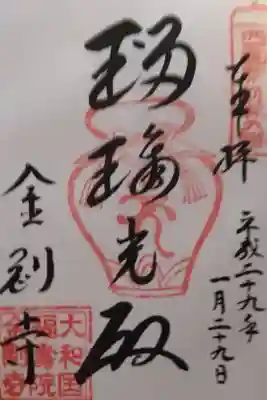 奉拝
平成二十九年
一月二十九日
瑠璃光殿
金剛寺
大和国
金剛寺